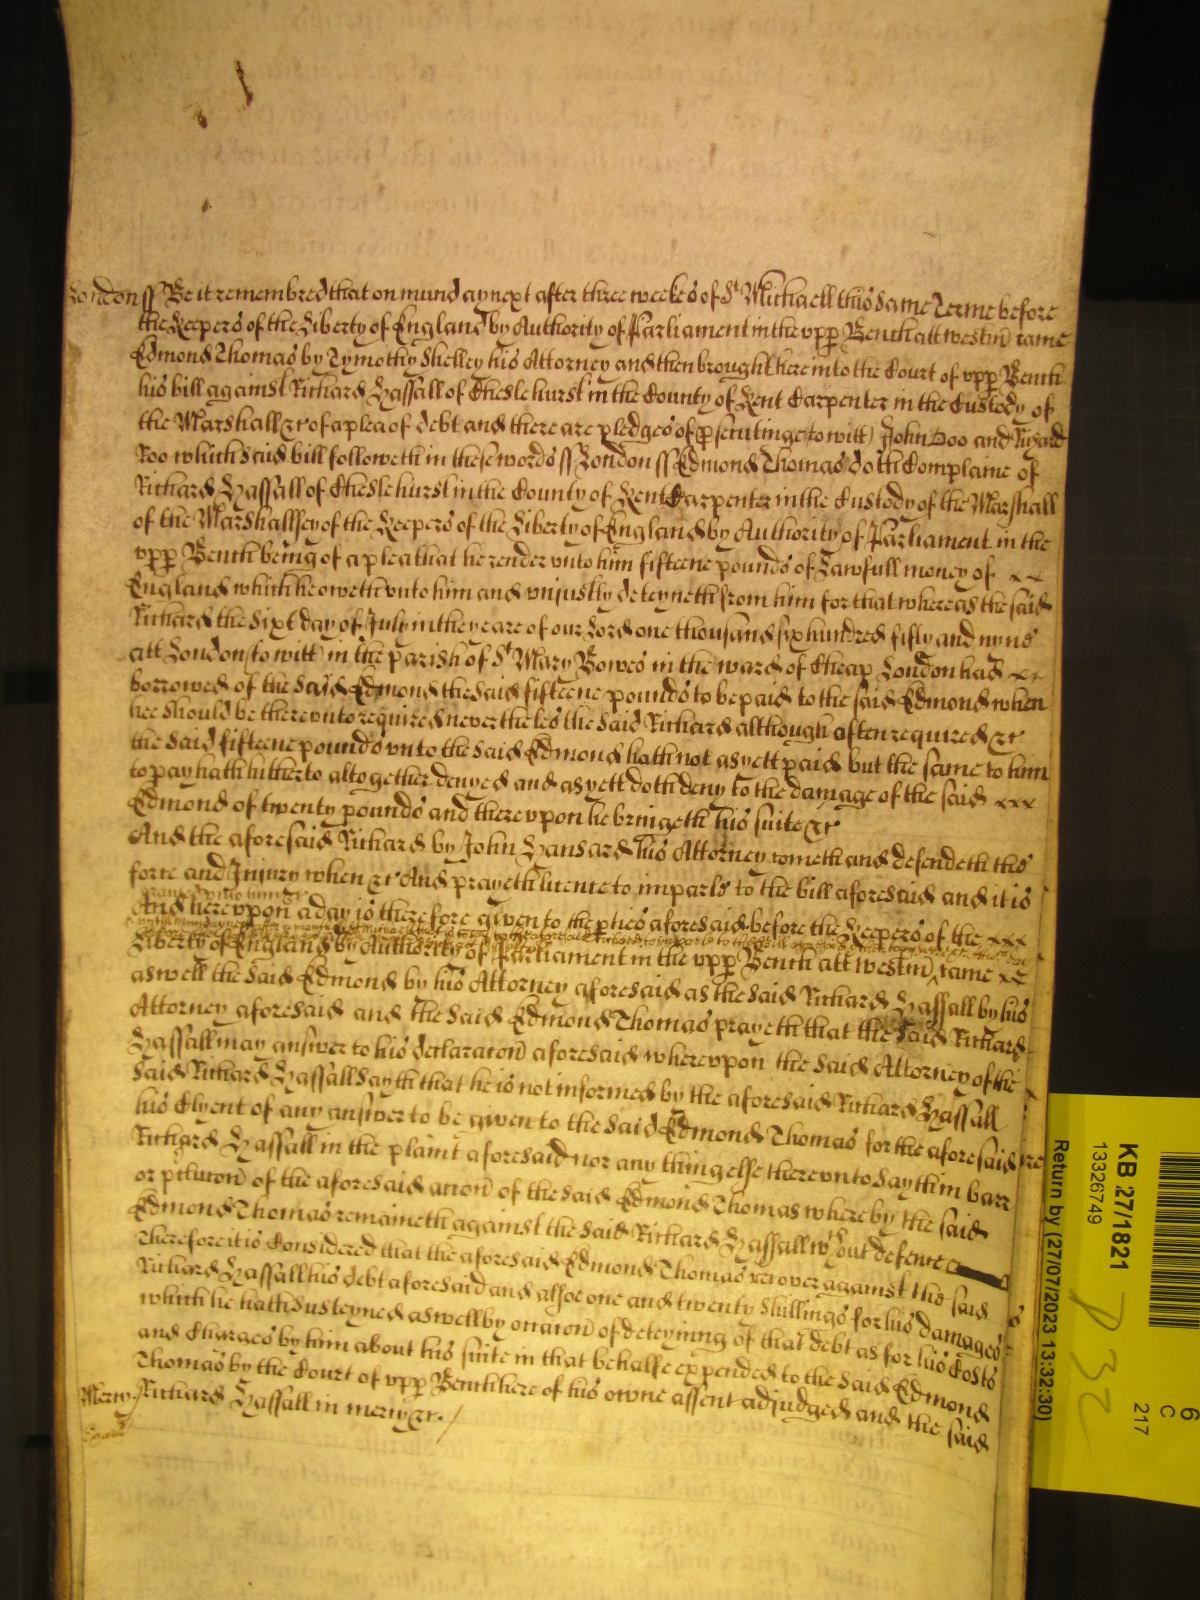 London ss Be it remembred that on munday next after three weekes of St Michaell this same Terme before
the Keepers of the Liberty of England by Authority of Parliament in the vpp Bench att westm came
Edmond Thomas by Tymothy Shelley his Attorney and then brought here into the Court of vpp Bench
his bill against Richard Hassall of Cheslehurst in the County of Kent Carpenter in the Custody of
the Marshall &c of a plea of debt and there are pledges of psecutinge (to witt) John Doo and Richard
Roo which said bill followeth in these words ss London ss Edmond Thomas doth Complaine of
Richard Hassall of Cheslehurst in the County of Kent Carpenter in the Custody of the Marshall
of the Marshallsey of the Keepers of the Liberty of England by Authority of Parliament in the
vpp Bench being of a plea that he render vnto him fifteene pounds of Lawfull money of
England which he oweth vnto him and vniustly deteyneth from him for that whereas the said
Richard the sixt day of July in the yeare of our Lord one thousand six hundred fifty and nyne
att London (to witt) in the parish of St Mary Bowes in the ward of Cheap London had
borrowed of the said Edmond the said fifteene pounds to be paid to the said Edmond when
hee should be therevnto required neverthelesthe said Richard although often required &c
the said fifteene pounds vnto the said Edmond hath not as yett paid but the same to him
to pay hath hitherto altogether denyed and as yett doth deny to the damage of the said xxx
Edmond of twenty pounds and therevpon he bringeth his suite &c
And the aforesaid Richard by John Hansard his Attorney cometh and defendeth the
force and Injury when &c And prayeth licence to imparle to the bill aforesaid and it is
graunted vnto him &c
And herevpon a day is therefore given to the pties aforesaid before the Keepers of the xxx
Liberty of England by Authority of Parliament in the vpp Bench att westm came
aswell the said Edmond by his Attorney aforesaid as the said Richard Hassall by his
Attorney aforesaid and the said Edmond Thomas prayeth that the said Richard
Hassall may answer to his declaracon aforesaid wherevpon the said Attorney of the
said Richard Hassall sayth that he is not informed by the aforesaid Richard Hassall
his Clyent of any answer to be given to the said Edmond Thomas for the aforesaid
Richard Hassall in the plaint aforesaid nor any thing else therevnto sayth in barr
or pclucon of the aforesaid accon of the said Edmond Thomas whereby the said
Edmond Thomas remaineth against the said Richard Hassall wthout defence
Therefore it is Considered that the aforesaid Edmond Thomas recover against the said
Richard Hassall his debt aforesaid and alsoe one and twenty shillings for his damages
which he hath susteyned aswell by occacon of deteyning of that debt as for his Costs
and Charges by him about his suite in that behalfe expended to the said Edmond
Thomas by the Court of vpp Bench here of his owne assent adjudged and the said
Mercy Richard Hassall in mercy &c.
KB 27/1821
13326749
Return by (27/07/2023 13:32:30)
6
C
217